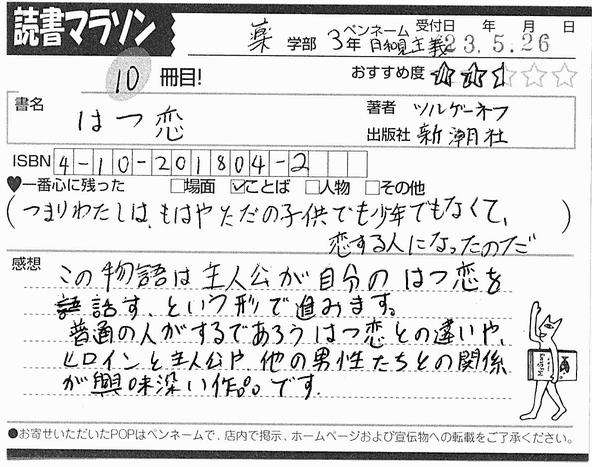 読書マラソン
薬 学部 3年 ペンネーム 日和見主義 受付日 年 月 日 23.5.26
10 冊目! おすすめ度 ★★☆☆☆
書名 はつ恋
著者 ツルゲーネフ
出版社 新潮社
ISBN 4-10-201804-2
♥一番心に残った □場面 ☑ことば □人物 □その他
(つまりわたしは、もはやただの子供でも少年でもなくて、
恋する人になったのだ)
感想
この物語は主人公が自分のはつ恋を
話す、という形で進みます。
普通の人がするであろうはつ恋との違いや、
ヒロインと主人公や他の男性たちとの関係
が興味深い作品です。
●お寄せいただいたPOPはペンネームで、店内で掲示、ホームページおよび宣伝物への転載をご了承ください。